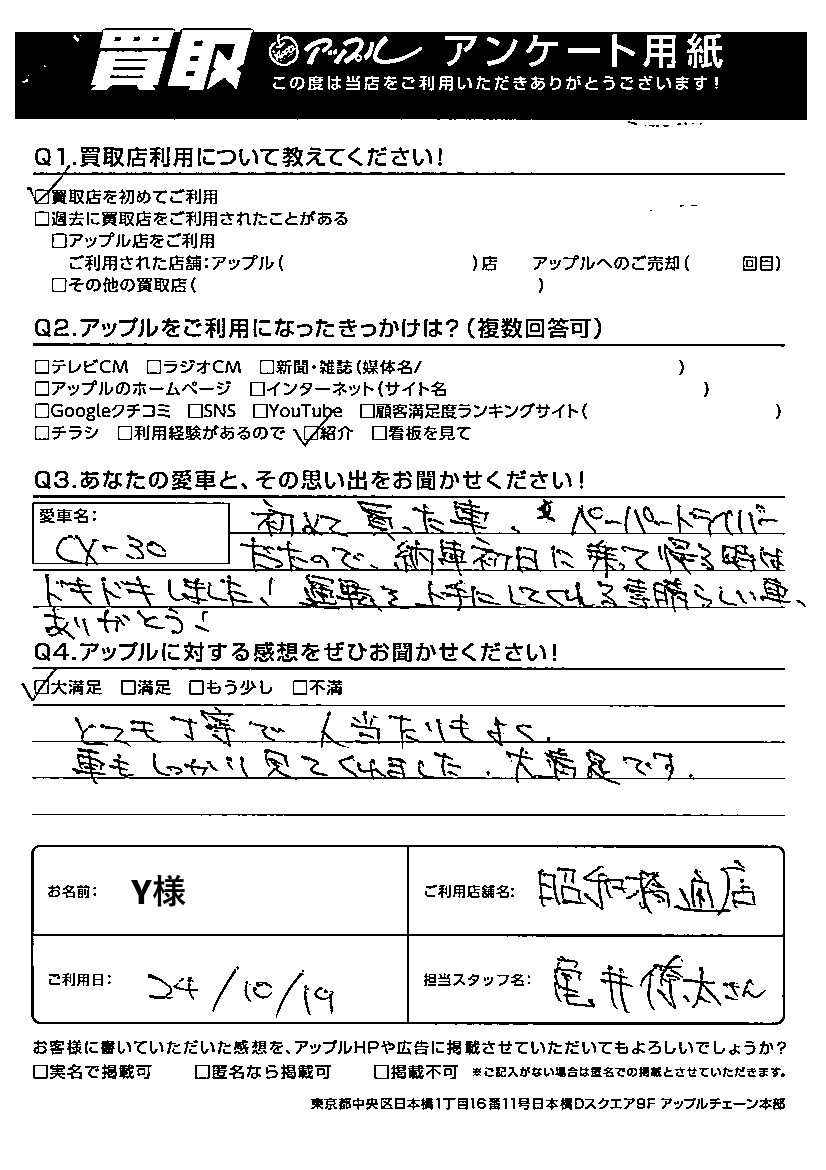 買取 アップル アンケート用紙
この度は当店をご利用いただきありがとうございます!
Q1.買取店利用について教えてください!
☑買取店を初めてご利用
□過去に買取店をご利用されたことがある
□アップル店をご利用
ご利用された店舗:アップル( )店 アップルへのご売却( 回目)
□その他の買取店( )
Q2.アップルをご利用になったきっかけは?(複数回答可)
□テレビCM □ラジオCM □新聞・雑誌(媒体名/ )
□アップルのホームページ □インターネット(サイト名 )
□Googleクチコミ □SNS □YouTube □顧客満足度ランキングサイト( )
□チラシ □利用経験があるので ☑紹介 □看板を見て
Q3.あなたの愛車と、その思い出をお聞かせください!
愛車名:
CX-30
初めて買った車、ペーパードライバー
だったので、納車初日に乗って帰る時は
ドキドキしました!運転を上手にしてくれる素晴らしい車、
ありがとう!
Q4.アップルに対する感想をぜひお聞かせください!
☑大満足 □満足 □もう少し □不満
とても丁寧で人当たりもよく、
車もしっかり見てくれました。大満足です。
お名前: Y様 ご利用店舗名: 昭和橋通店
ご利用日: 24/10/19 担当スタッフ名: 亀井僚太さん
お客様に書いていただいた感想を、アップルHPや広告に掲載させていただいてもよろしいでしょうか?
□実名で掲載可 □匿名なら掲載可 □掲載不可 ※ご記入がない場合は匿名での掲載とさせていただきます。
東京都中央区日本橋1丁目16番11号日本橋Dスクエア9F アップルチェーン本部